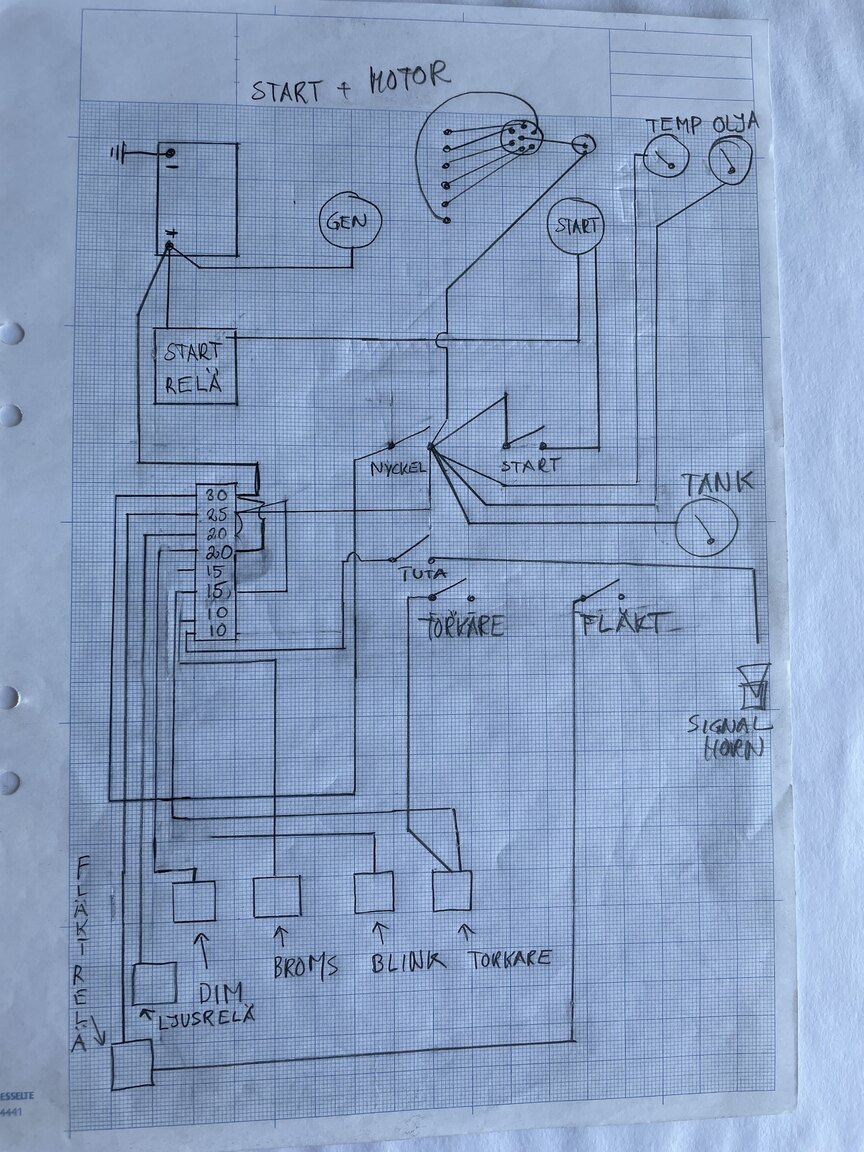 START + MOTOR
TEMP OLJA
-
GEN
START
+
START
RELÄ
NYCKEL
START
TANK
30
25
20
20
15
15
10
10
TUTA
TORKARE
FLÄKT
SIGNAL
HORN
FLÄKTRELÄ
DIM
BROMS
BLINK
TORKARE
LJUSRELÄ
ESSELTE
4441